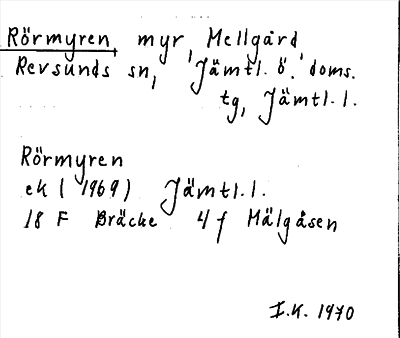 Rörmyren myr, Mellgård
Revsunds sn, Jämtl. ö. doms.
tg, Jämtl. l.
Rörmyren
ek (1969) Jämtl. l.
18 F Bräcke 4 f Mälgåsen
I.K. 1970